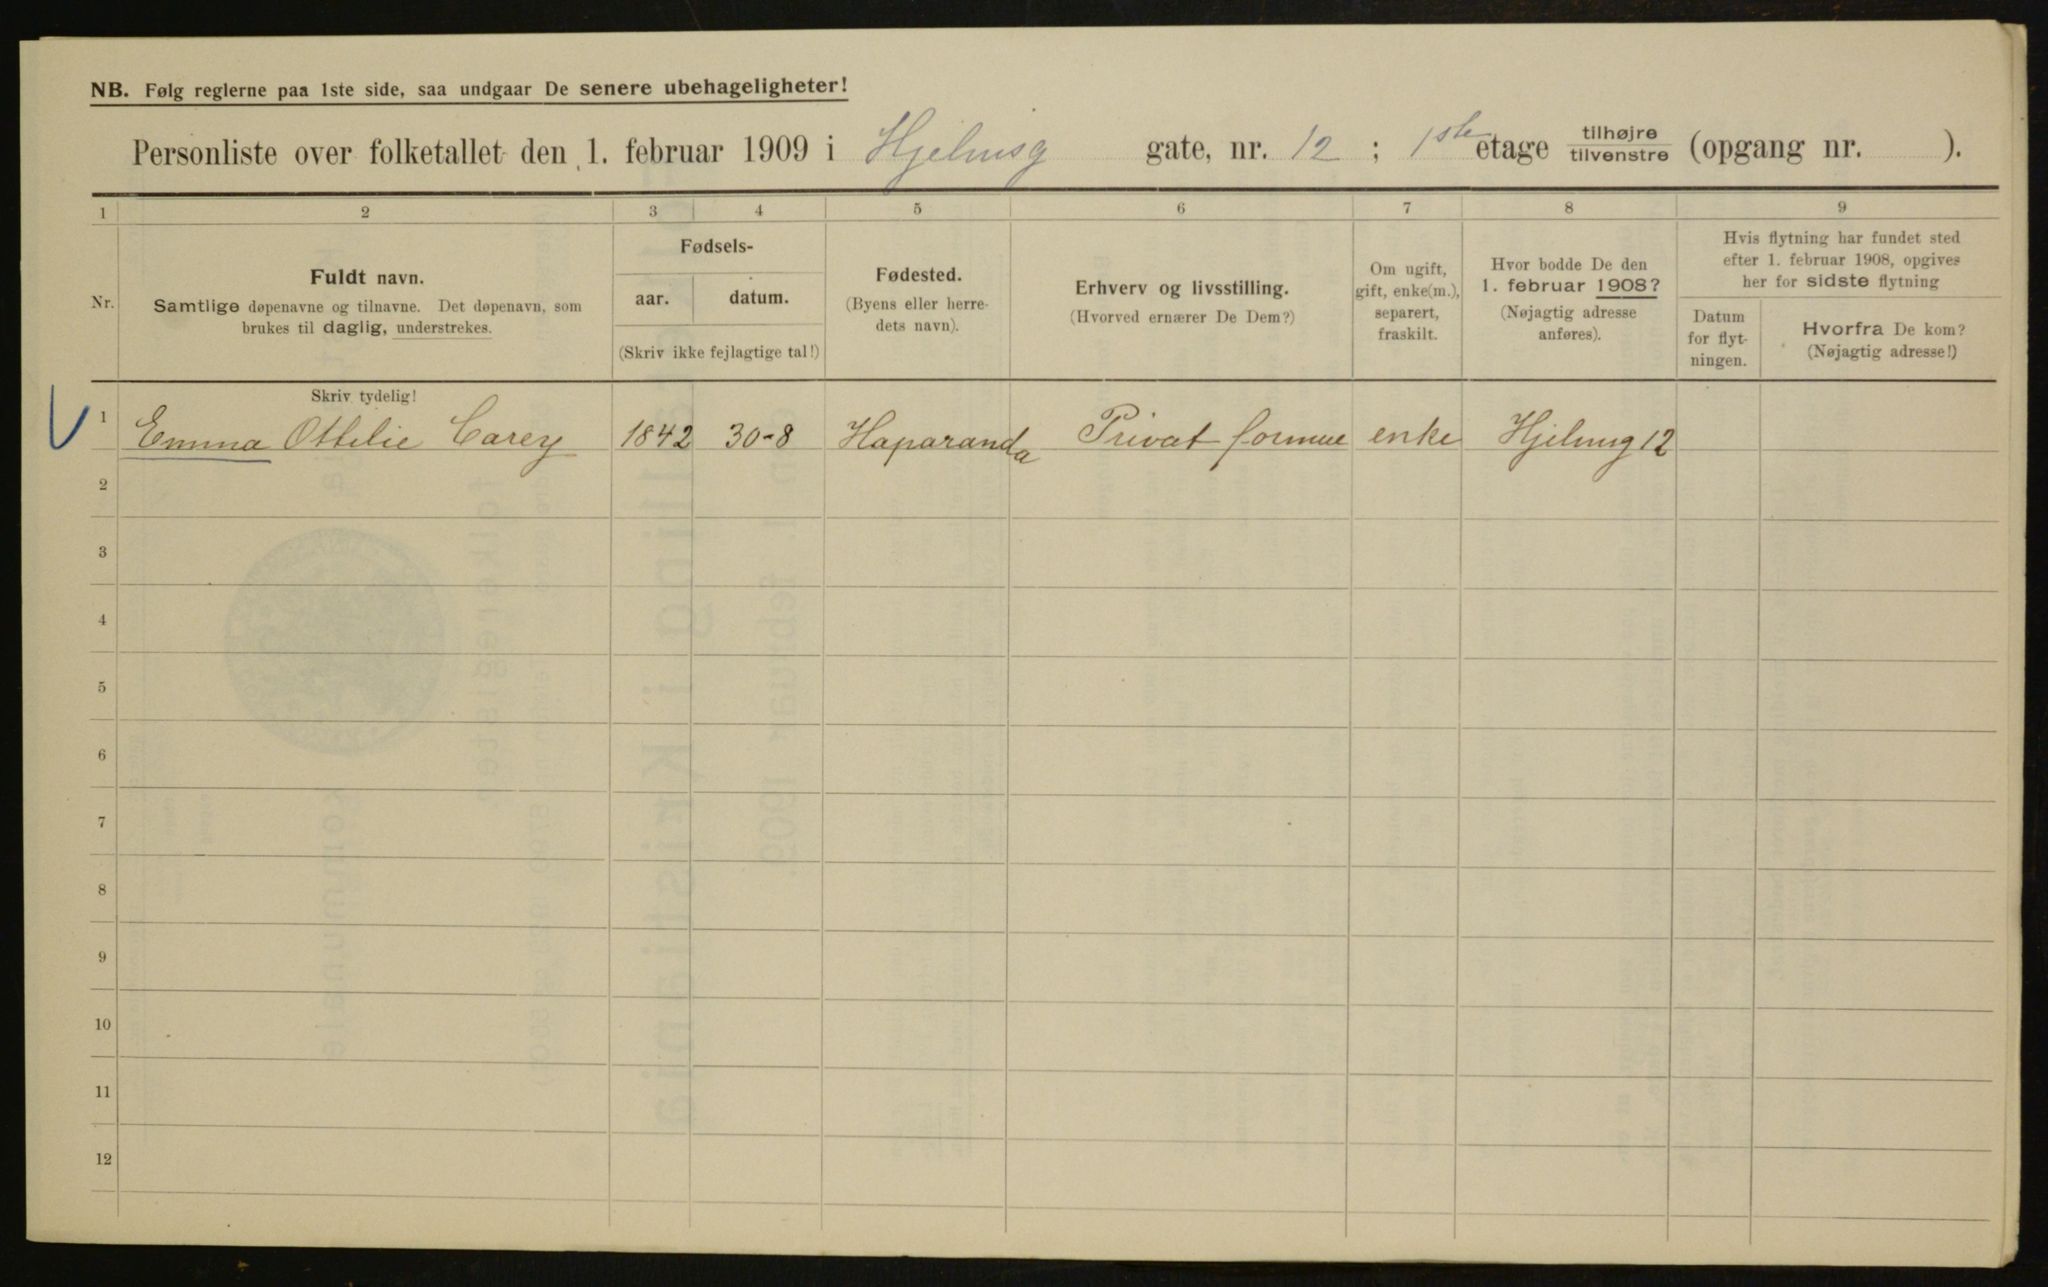 NB. Følg reglerne paa 1ste side, saa undgaar De senere ubehageligheter!
Personliste over folketallet den 1. februar 1909 i Hjelmsg gate, nr. 12 ; 1ste etage tilhøjre tilvenstre (opgang nr. ).
1 2 3 4 5 6 7 8 9
Nr.
Fuldt navn.
Samtlige døpenavne og tilnavne. Det døpenavn, som
brukes til daglig, understrekes.
Fødsels-
aar. datum.
(Skriv ikke fejlagtige tal!)
Fødested.
(Byens eller herre-
dets navn).
Erhverv og livsstilling.
(Hvorved ernærer De Dem?)
Om ugift,
gift, enke(m.),
separert,
fraskilt.
Hvor bodde De den
1. februar 1908?
(Nøjagtig adresse
anføres).
Hvis flytning har fundet sted
efter 1. februar 1908, opgives
her for sidste flytning
Datum
for flyt-
ningen.
Hvorfra De kom?
(Nøjagtig adresse!)
Skriv tydelig!
1 Emma Ottilie Carey 1842 30-8 Haparanda Privat formue enke Hjelmsg 12
2
3
4
5
6
7
8
9
10
11
12